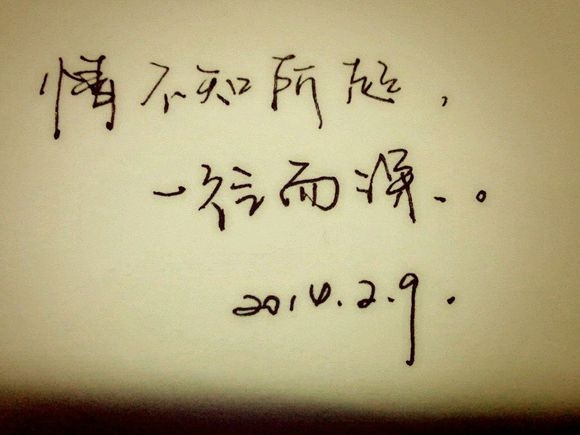 情不知所起，
一往而深.。
2014.2.9.